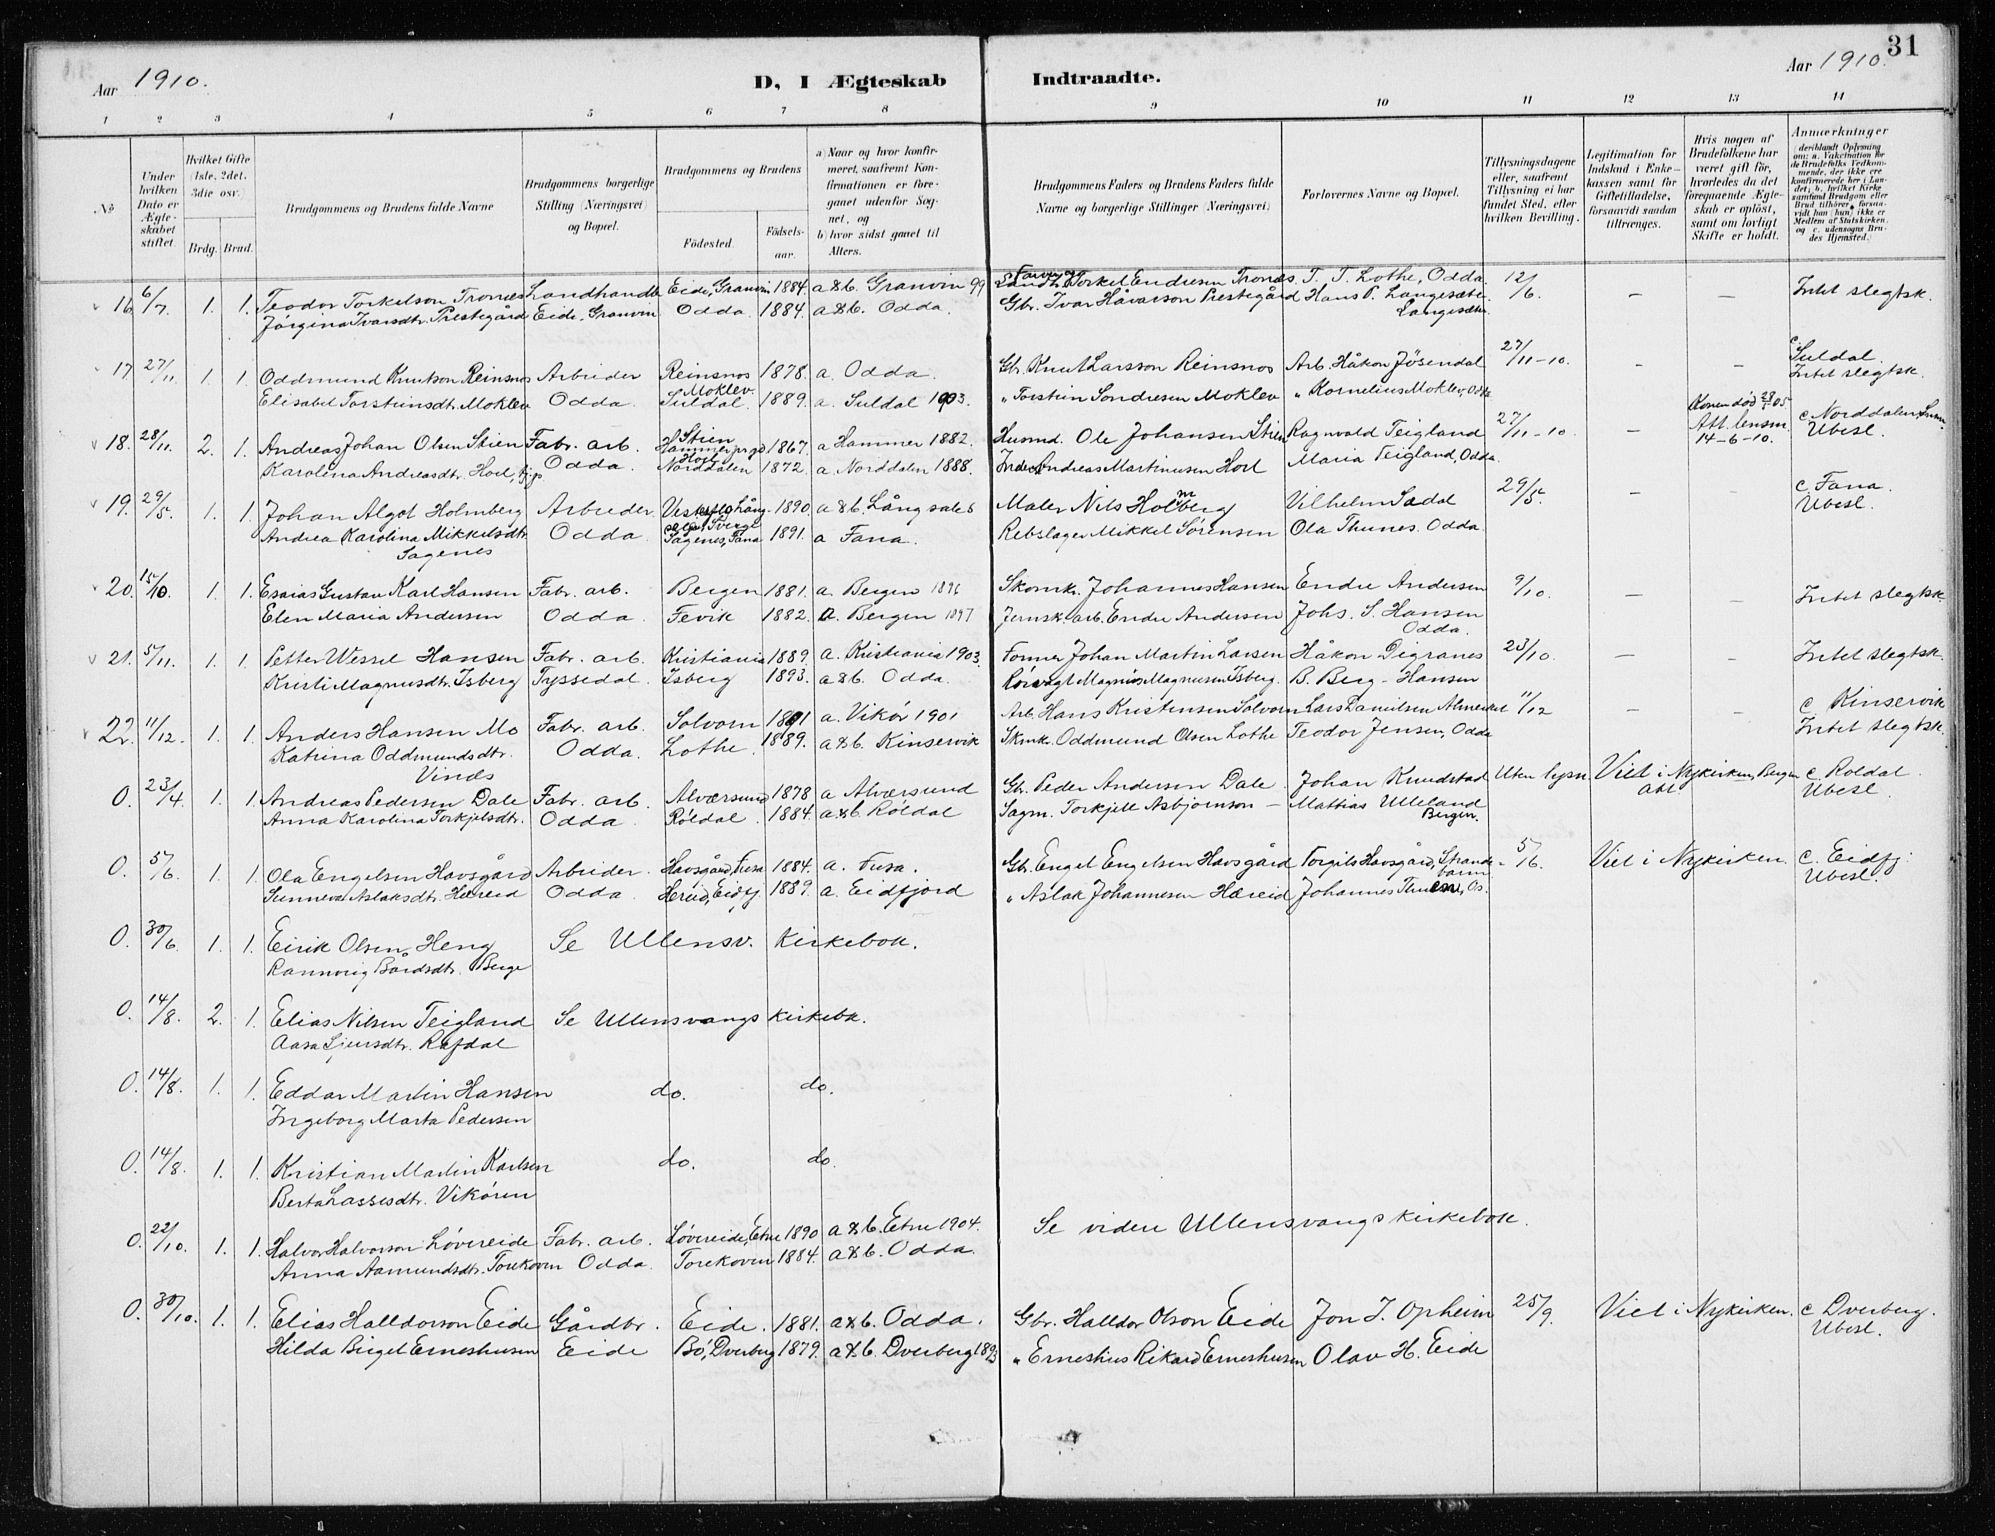 31
Aar 1910.
D, I Ægteskab Indtraadte.
Aar 1910.
1 2 3 4 5 6 7 8 9 10 11 12 13 14
No
Under hvilken Dato er Ægteskabet stiftet.
Hvilket Gifte (1ste, 2det, 3die osv.)
Brdg. Brud.
Brudgommens og Brudens fulde Navne
Brudgommens borgerlige Stilling (Næringsvei) og Bopæl.
Brudgommens og Brudens
Fødested.
Fødselsaar.
a) Naar og hvor konfirmeret, saafremt Konfirmationen er foregaaet udenfor Sognet, og
b) hvor sidst gaaet til Alters.
Brudgommens Faders og Brudens Faders fulde Navne og borgerlige Stillinger (Næringsvei)
Forlovernes Navne og Bopæl.
Tillysningsdagene eller, saafremt Tillysning ei har fundet Sted, efter hvilken Bevilling.
Legitimation for Indskud i Enkekassen samt for Giftetilladelse, forsaavidt saadan tiltrænges.
Hvis nogen af Brudefolkene har været gift før, hvorledes da det foregaaende Ægteskab er opløst, samt om lovligt Skifte er holdt.
Anmærkninger (deriblandt Oplysning om: a. Vakcination for de Brudefolks Vedkommende, der ikke ere konfirmerede her i Landet; b. hvilket Kirkesamfund Brudgom eller Brud tilhører, forsaavidt han (hun) ikke er Medlem af Statskirken, og c. udensogns Brudes Hjemsted.)
16. 6/7. 1. 1. Teodor Torkelson Tronæs Landhandl. Eide, Granvin 1884. a&b. Granvin 99 Landh. Torkel Endresen Tronæs. T. T. Lothe, Odda. 12/6. — — Intet slegtsk.
Jørgina Ivarsdtr. Prestegård Eide, Granvin Odda. 1884. a&b. Odda. Gbr. Ivar Håvarson Prestegård Hans P. Langesæter Langesæter
17. 27/11. 1. 1. Oddmund Knutson Reinsnos Arbeider Reinsnos 1878. a. Odda. Gbr. Knut Larsson Reinsnos Arb. Håkon Jøsendal 27/11-10. — — c Suldal. Intet slegtsk.
Elisabet Torsteinsdtr. Moklev Odda. Moklev Suldal. 1889. a. Suldal 1903. " Torstin Sondresen Moklev " Kornelius Moklev, Odda
18. 28/11. 2. 1. Andreas Johan Olsen Stien Fabr. arb. Stien Hammer prgd 1867. a Hammer 1882. Husmd. Ole Johansen Stien Ragnvald Teigland 27/11-10. — Konen død 28/1 05 Att. lensm. 14-6-10. c Norddalen Ubesl.
Karolina Andreasdtr. Hoel, Odda. Hoel Norddalen 1872. a Norddalen 1888. Inders. Andreas Martinusen Hoel Maria Teigland, Odda.
19. 29/5. 1. 1. Johan Algot Holmberg Arbeider. 1890. a&b. Långsele Maler Nils Holmberg Vilhelm Sædal 29/5. — — c Fana. Ubesl.
Andrea Karolina Mikkelsdtr. Sagenes Odda. Sagenes, Fana 1891. a Fana. Rebslager Mikkel Sørensen Ola Thunes. Odda
20. 15/10. 1. 1. Esaias Gustav Karl Hansen Fabr. arb. Bergen 1881. a. Bergen 1896 Skomk. Johannes Hansen Endre Andersen 9/10. — — Intet slegtsk.
Elen Maria Andersen Odda. Fevik 1882. a. Bergen 1897 Jernsk. arb. Endre Andersen Johs. S. Hansen Odda.
21. 5/11. 1. 1. Petter Wessel Hansen Fabr. arb. Kristiania 1889. a. Kristiania 1903. Former Johan Martin Larsen Håkon Digranes 23/10. — — Intet slegtsk.
Kristi Magnusdtr. Isberg Tyssedal. Isberg 1893. a&b. Odda. Rørvagt Magnus Magnusen Isberg. B. Berg-Hansen
22. 11/12. 1. 1. Anders Hansen Mo Fabr. arb. Solvorn 1881 a. Vikør 1901 Arb. Hans Kristensen Solvorn Lars Danielsen Almerket 11/12 — — c Kinservik Intet slegtsk.
Katrina Oddmundsdtr. Vinæs Odda. Lothe. 1889. a&b. Kinservik Skmk. Oddmund Olsen Lothe Teodor Jensen, Odda
0. 23/4. 1. 1. Andreas Pedersen Dale Fabr. arb. Alværsund 1878 a Alværsund Gb. Peder Anderson Dale. Johan Knudstad Uten lysn. Viet i Nykirken, Bergen c Roldal. Ubesl.
Anna Karolina Torkjelsdtr. Odda. Røldal. 1884. a&b Røldal Sagm. Torkjell Asbjørnson — Mattias Ulleland Bergen.
0. 5/6. 1. 1. Ola Engelsen Havsgård Arbeider. Havsgård, Fusa 1884. a. Fusa. Gb. Engel Engelsen Havsgård Torgils Havsgård, Strandebarm 5/6. Viet i Nykirken. c. Eidfj. Ubesl.
Sunneva Aslaksdtr. Hæreid Odda Hereid, Eidfj. 1889. a. Eidfjord " Aslak Johannesen Hæreid Johannes , Os.
0. 30/6. 1. 1. Eirik Olsen Heng Se Ullensv. Kirkebok.
Rannveig Bårdsdtr. Berge
0. 14/8. 2. 1. Elias Nilsen Teigland Se Ullensvangs kirkebk.
Aasa Sjursdtr. Rafdal
0. 14/8. 1. 1. Eddar Martin Hansen do. do.
Ingeborg Marta Pedersen
0. 14/8. 1. 1. Kristian Martin Karlsen do. do.
Berta Lassesdtr. Vikøren
0. 22/10. 1. 1. Halvor Halvorson Løvereide Fabr. arb. Løvereide, Etne 1890 a&b. Etne 1904. Se videre Ullensvangs kirkebok.
Anna Aamundsdtr. Torekoven Odda. Torekoven 1884. a&b. Odda.
0. 30/10. 1. 1. Elias Halldorson Eide Gårdbr. Eide. 1881. a&b. Odda. Gbr. Halldor Olson Eide Jon J. Opheim 25/9. Viet i Nykirken. c Dverberg. Ubesl.
Hilda Birgit Erneshusen Eide Bø, Dverberg 1879. a&b. Dverberg 1893 " Ernestius Rikard Erneshusen Olav H. Eide